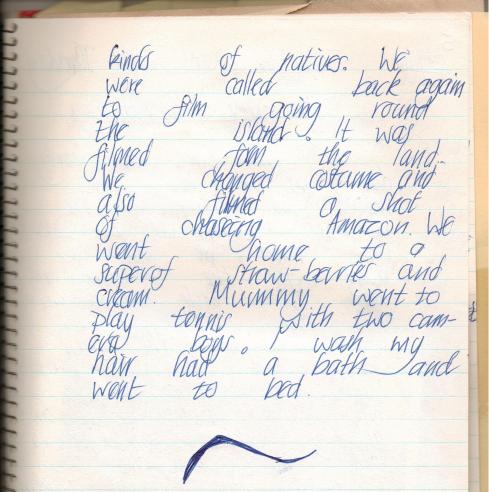 kinds of natives. We
were called back again
to film going round
the island. It was
filmed fom the land.
We changed costume and
also filmed a shot
of chaseing Amazon. We
went home to a
superof straw-berries and
cream. Mummy went to
play tennis with two cam-
era boys. I wash my
hair had a bath and
went to bed.